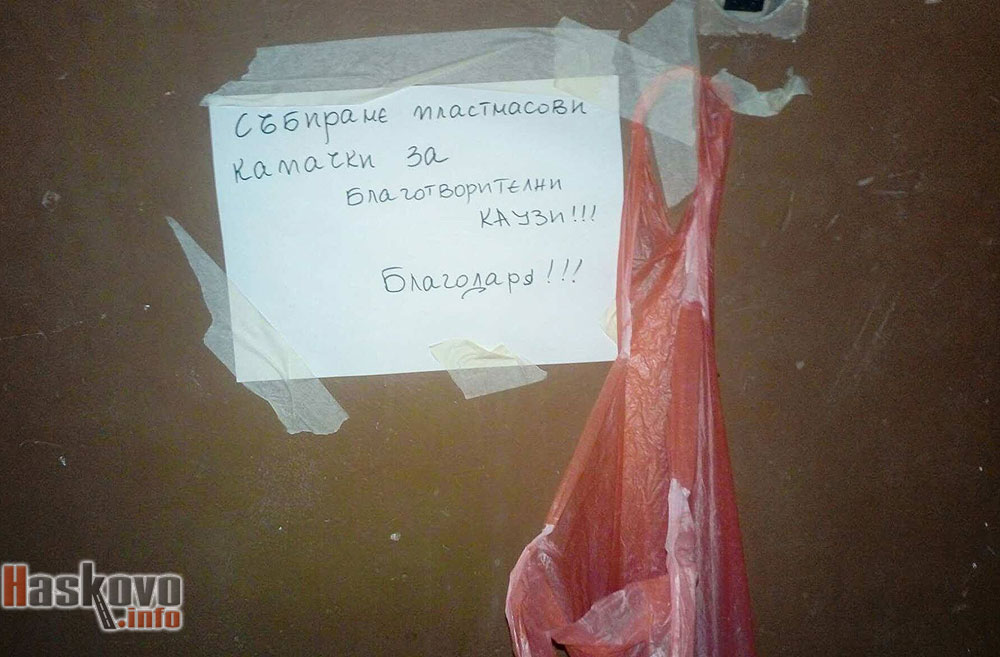 Събираме пластмасови
капачки за
Благотворителни
каузи!!!
Благодаря!!!
Haskovo
.info